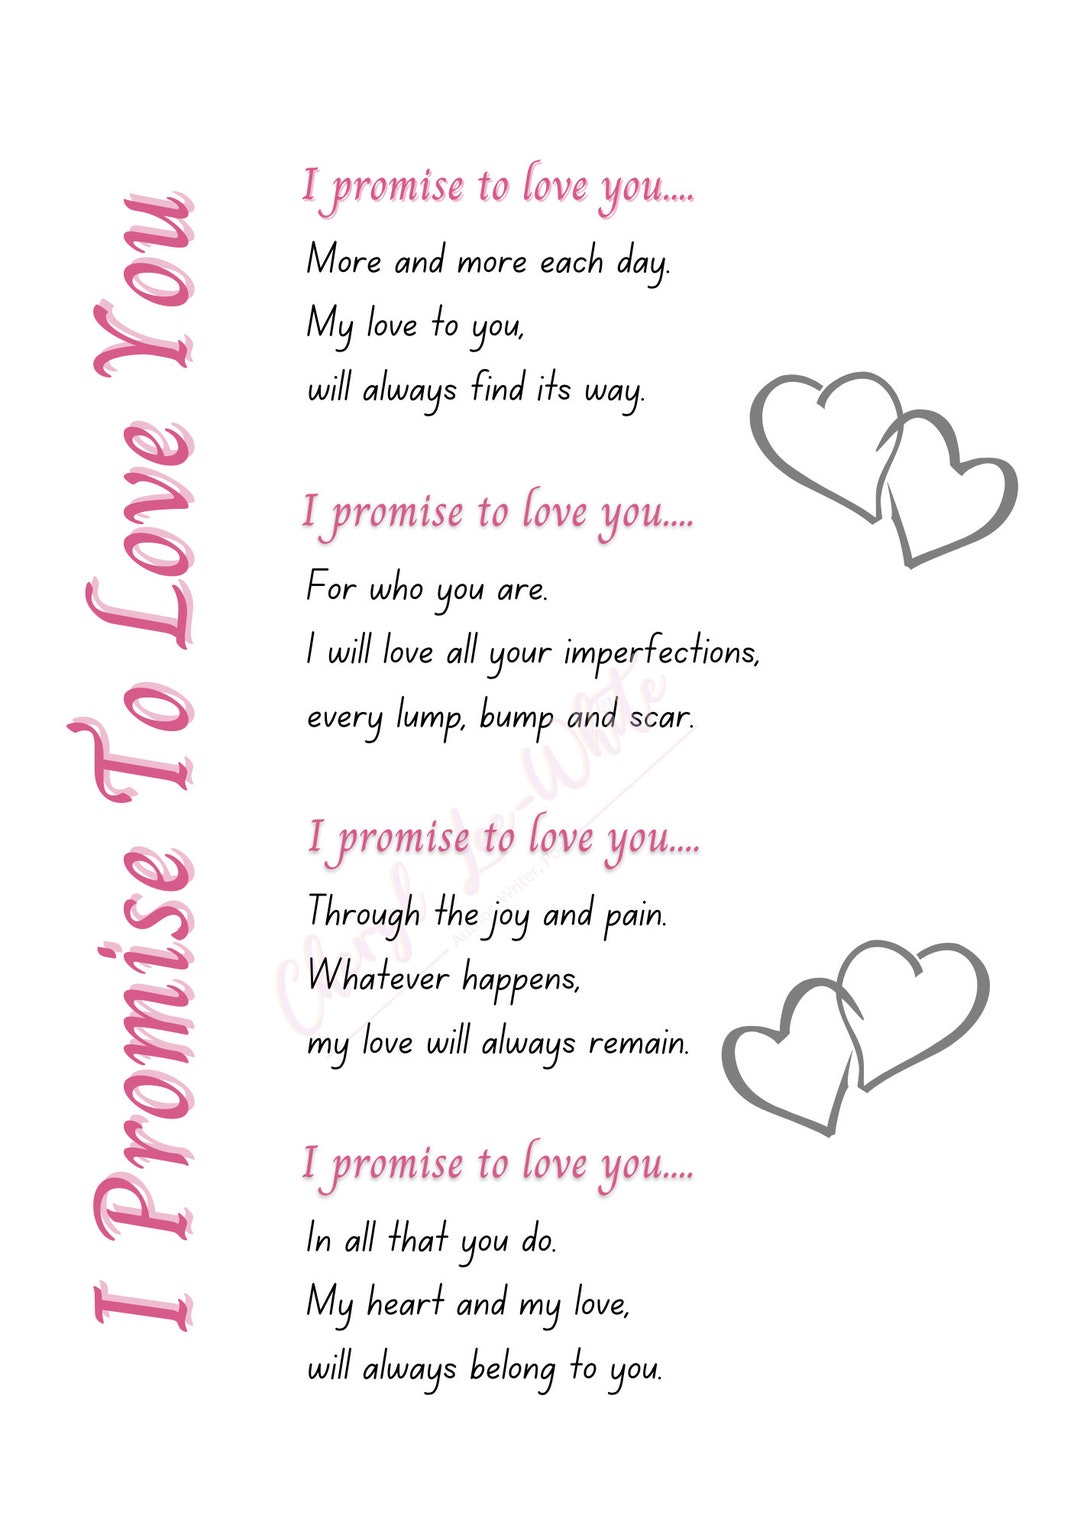 I Promise To Love You
I promise to love you....
More and more each day.
My love to you,
will always find its way.
I promise to love you....
For who you are.
I will love all your imperfections,
every lump, bump and scar.
I promise to love you....
Through the joy and pain.
Whatever happens,
my love will always remain.
I promise to love you....
In all that you do.
My heart and my love,
will always belong to you.
Cheryl Lee-White